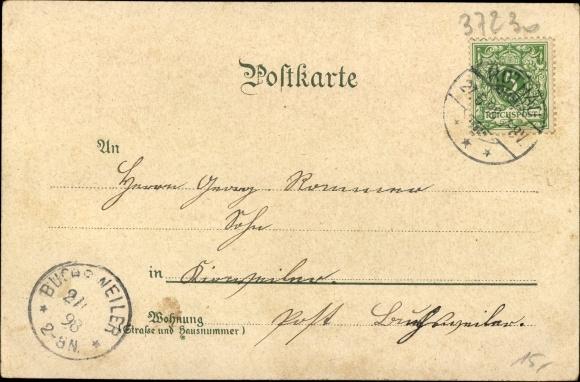 3723
Postkarte
REICHSPOST
An
Herrn Georg Rommer
Sohn
in Kirrweiler.
Wohnung
(Straße und Hausnummer)
Post Buchsweiler.
BUCHSWEILER
98
2-3N.
15,-